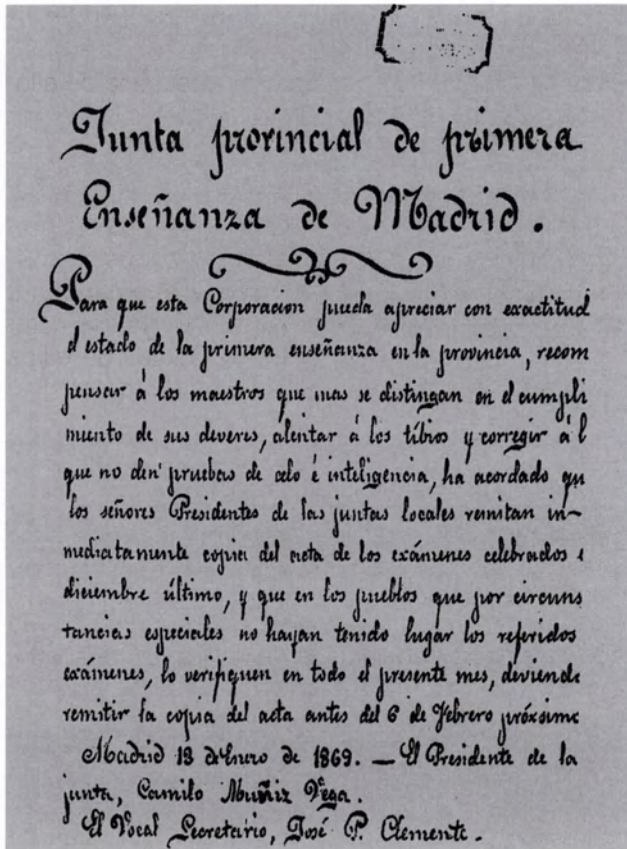 Junta provincial de primera
Enseñanza de Madrid.
Para que esta Corporacion pueda apreciar con exactitud
el estado de la primera enseñanza en la provincia, recom
pensar á los maestros que mas se distingan en el cumpli
miento de sus deveres, alentar á los tíbios y corregir á l
que no den pruebas de celo é inteligencia, ha acordado qu
los señores Presidentes de las juntas locales remitan in~
mediatamente copia del acta de los exámenes celebrados e
diciembre último, y que en los pueblos que por circuns
tancias especiales no hayan tenido lugar los referidos
exámenes, lo verifiquen en todo el presente mes, deviende
remitir la copia del acta antes del 6 de Febrero próxime
Madrid 13 de Enero de 1869. — El Presidente de la
junta, Camilo Muñiz Vega.
El Vocal Secretario, José P. Clemente.